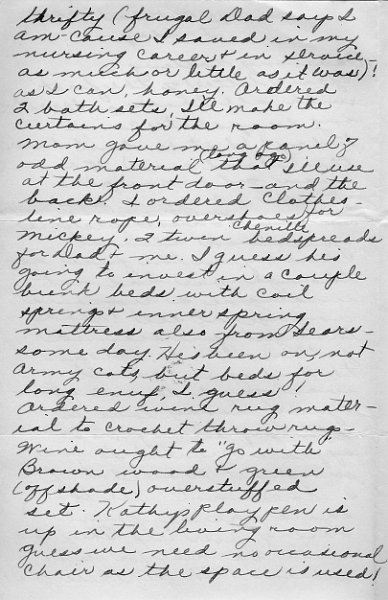 thrifty (frugal Dad says I
am - cause I saved in my
nursing career & in service -
as much or little as it was)!
as I can, honey. Ordered
2 bath sets, I'll make the
curtains for the room.
Mom gave me a panel of
odd material (long ago) that I'll use
at the front door - and the
back. I ordered clothes-
line rope, overshoes for
Mickey, 2 twin chenille bedspreads
for Dad & me. I guess he's
going to invest in a couple
bunk beds with coil
springs & inner spring
mattress also from Sears -
some day. He's been on, not
Army cots, but beds for
long enuf, I guess!
Ordered wine rug mater-
ial to crochet throw rug -
Wine ought to "go with
Brown wood & green
(off shade) overstuffed
set. Kathy's play pen is
up in the living room
guess we need no occasional
chair as the space is used!